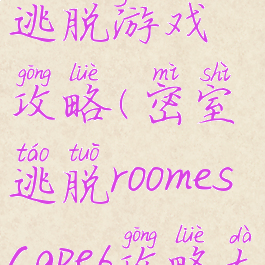 逃脱游戏
gōng lüè mì shì
攻略(密室
táo tuō
逃脱roomes
gōng lüè dà
cape6攻略大